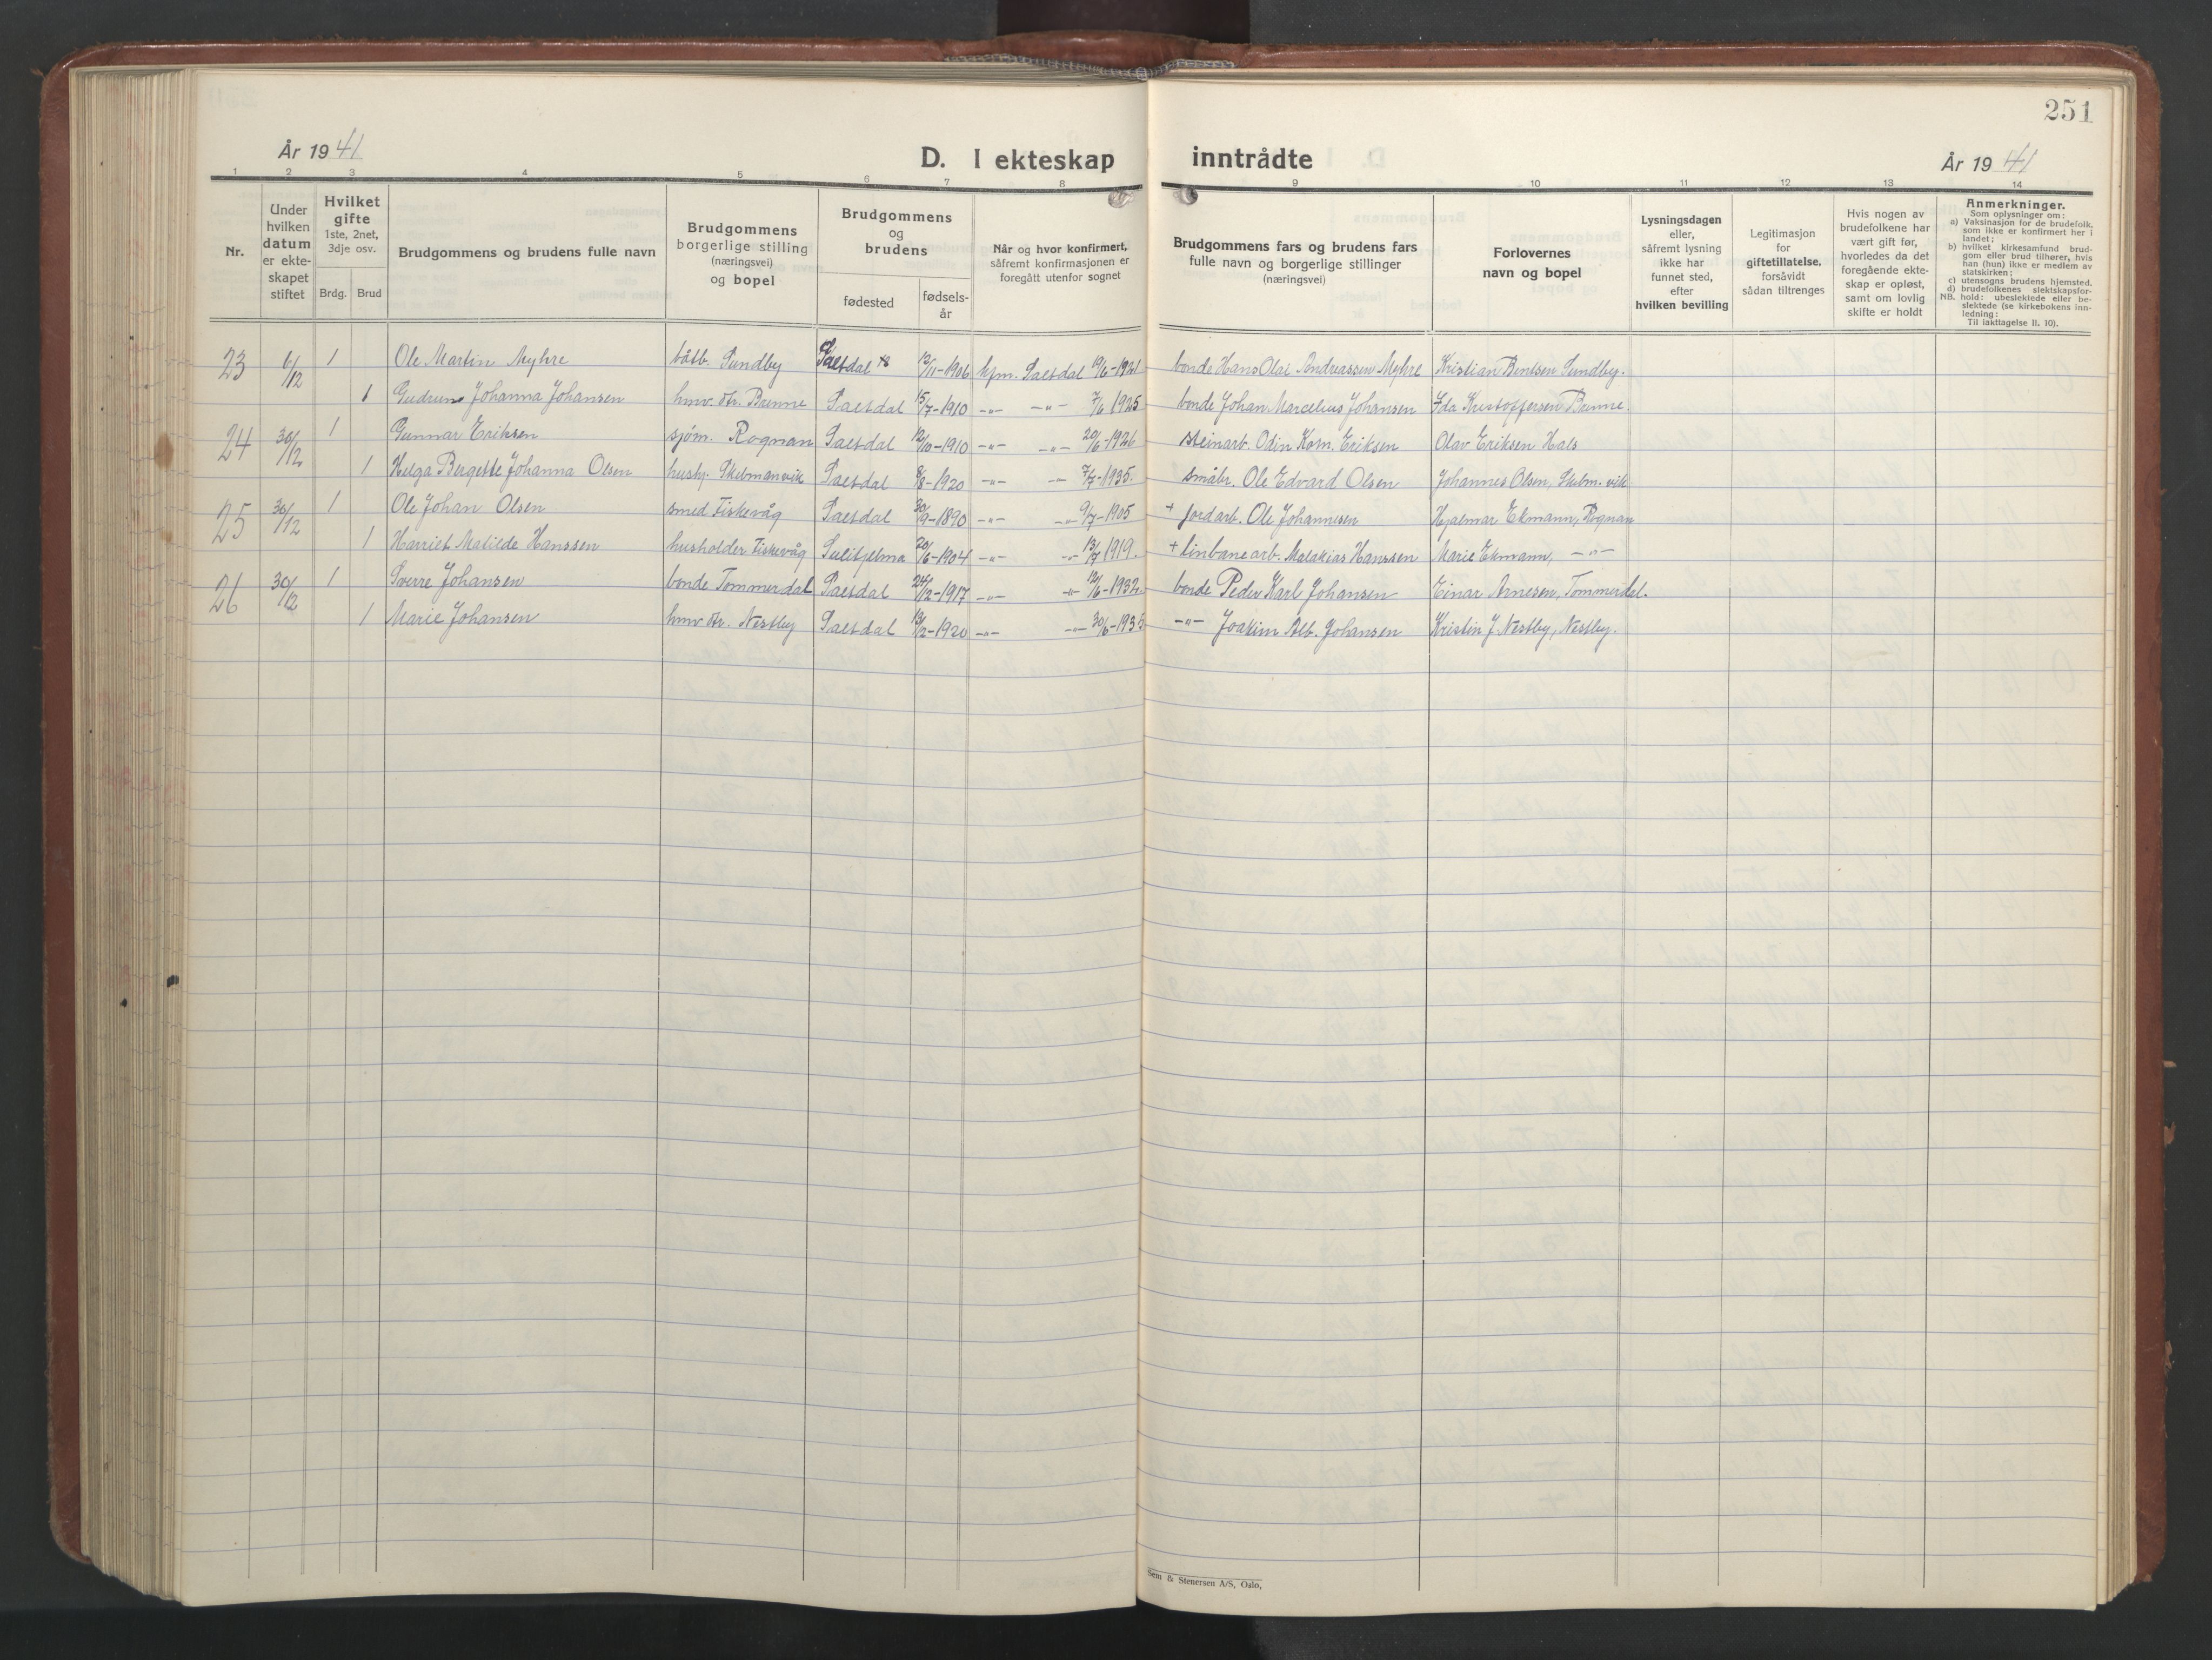 251
År 1941 D. I ekteskap inntrådte År 1941
1 2 3 4 5 6 7 8 9 10 11 12 13 14
Nr.
Under
hvilken
datum
er ekte-
skapet
stiftet
Hvilket
gifte
1ste, 2net,
3dje osv.
Brdg. Brud
Brudgommens og brudens fulle navn
Brudgommens
borgerlige stilling
(næringsvei)
og bopel
Brudgommens
og
brudens
fødested
fødsels-
år
Når og hvor konfirmert,
såfremt konfirmasjonen er
foregått utenfor sognet
Brudgommens fars og brudens fars
fulle navn og borgerlige stillinger
(næringsvei)
Forlovernes
navn og bopel
Lysningsdagen
eller,
såfremt lysning
ikke har
funnet sted,
efter
hvilken bevilling
Legitimasjon
for
giftetillatelse,
forsåvidt
sådan tiltrenges
Hvis nogen av
brudefolkene har
vært gift før,
hvorledes da det
foregående ekte-
skap er opløst,
samt om lovlig
skifte er holdt
Anmerkninger.
Som oplysninger om:
a) Vaksinasjon for de brudefolk,
som ikke er konfirmert her i
landet;
b) hvilket kirkesamfund brud-
gom eller brud tilhører, hvis
han (hun) ikke er medlem av
statskirken;
c) utensogns brudens hjemsted.
d) brudefolkenes slektskapsfor-
hold: ubeslektede eller be-
slektede (se kirkebokens inn-
ledning:
NB. Til iakttagelse II. 10).
23 6/12 1 Ole Martin Myhre båtb. Sundby Saltdal 12/11-1906 hjm. Saltdal 19/6-1921 bonde Hans Olai Andreassen Myhre Kristian Bentsen Sundby.
1 Gudrun Johanna Johansen hmv. dtr. Brenne Saltdal 15/7-1910 -"- -"- 7/6 1925 bonde Johan Marcelius Johansen Ida Kristoffersen Brenne.
24 30/12 1 Gunnar Eriksen sjøm. Rognan Saltdal 12/10-1910 -"- -"- 20/6-1926 steinarb. Odin Korn. Eriksen Olav Eriksen Hals
1 Helga Bergette Johanna Olsen hushj. Skelmanvik Saltdal 8/8-1920 -"- -"- 7/7-1935. småbr. Ole Edvard Olsen Johannes Olsen, Skelm.vik
25 30/12 1 Ole Johan Olsen smed Fiskevåg Saltdal 30/9-1890 -"- -"- 9/7-1905 + jordarb. Ole Johannesen Hjalmar Ekmann, Rognan
1 Harriet Matilde Hanssen husholder Fiskevåg Sulitjelma 20/6-1904 -"- -"- 13/7 1919. + linbanearb. Malakias Hanssen Marie Ekmann, -"-
26 30/12 1 Sverre Johansen bonde Tommerdal Saltdal 24/12-1917 -"- -"- 12/6-1932. bonde Peder Karl Johansen Einar Arnesen, Tommerdal.
1 Marie Johansen hmv dtr. Nestby Saltdal 13/2-1920 -"- -"- 30/6-1935 -"- Joakim Alb. Johansen Kristin J Nestby, Nestby.
Sem & Stenersen A/S, Oslo,